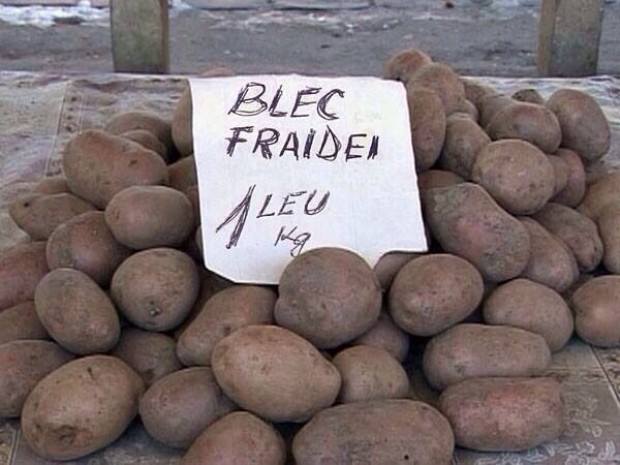 BLEC
FRAIDEI
1 LEU
Kg